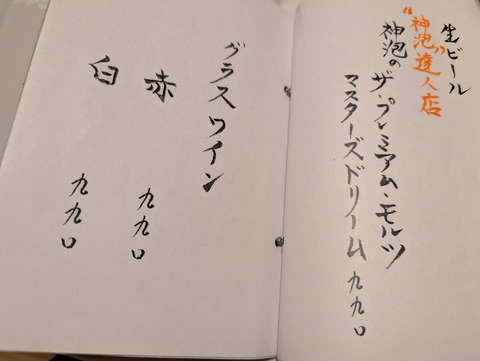 生ビール
"神泡"達人店
神泡の
ザ・プレミアム・モルツ
マスターズドリーム 九九〇
グラスワイン
赤 九九〇
白 九九〇